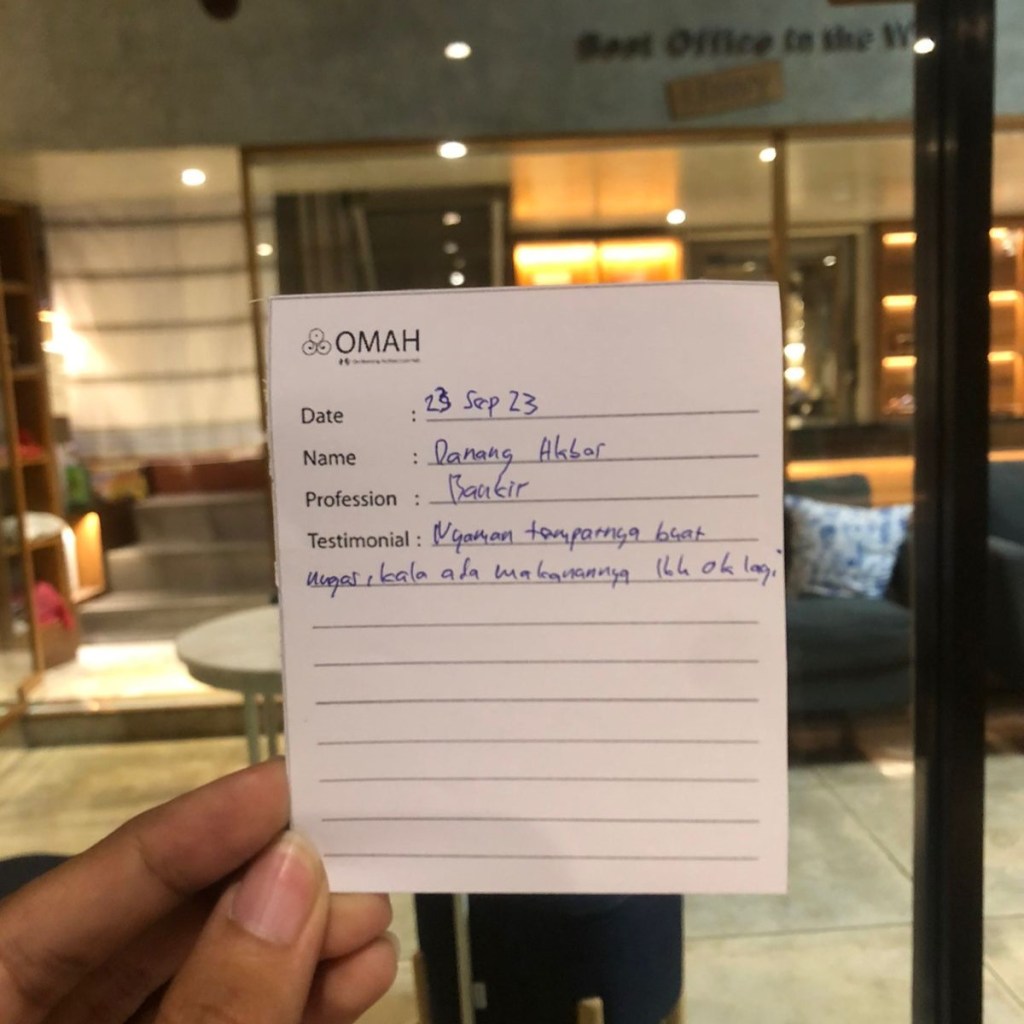 Best Office in the W
OMAH
Date : 23 Sep 23
Name : Danang Akbar
Profession : Bankir
Testimonial : Nyaman tempatnya buat
nugas, kala ada makanannya lbh ok lagi